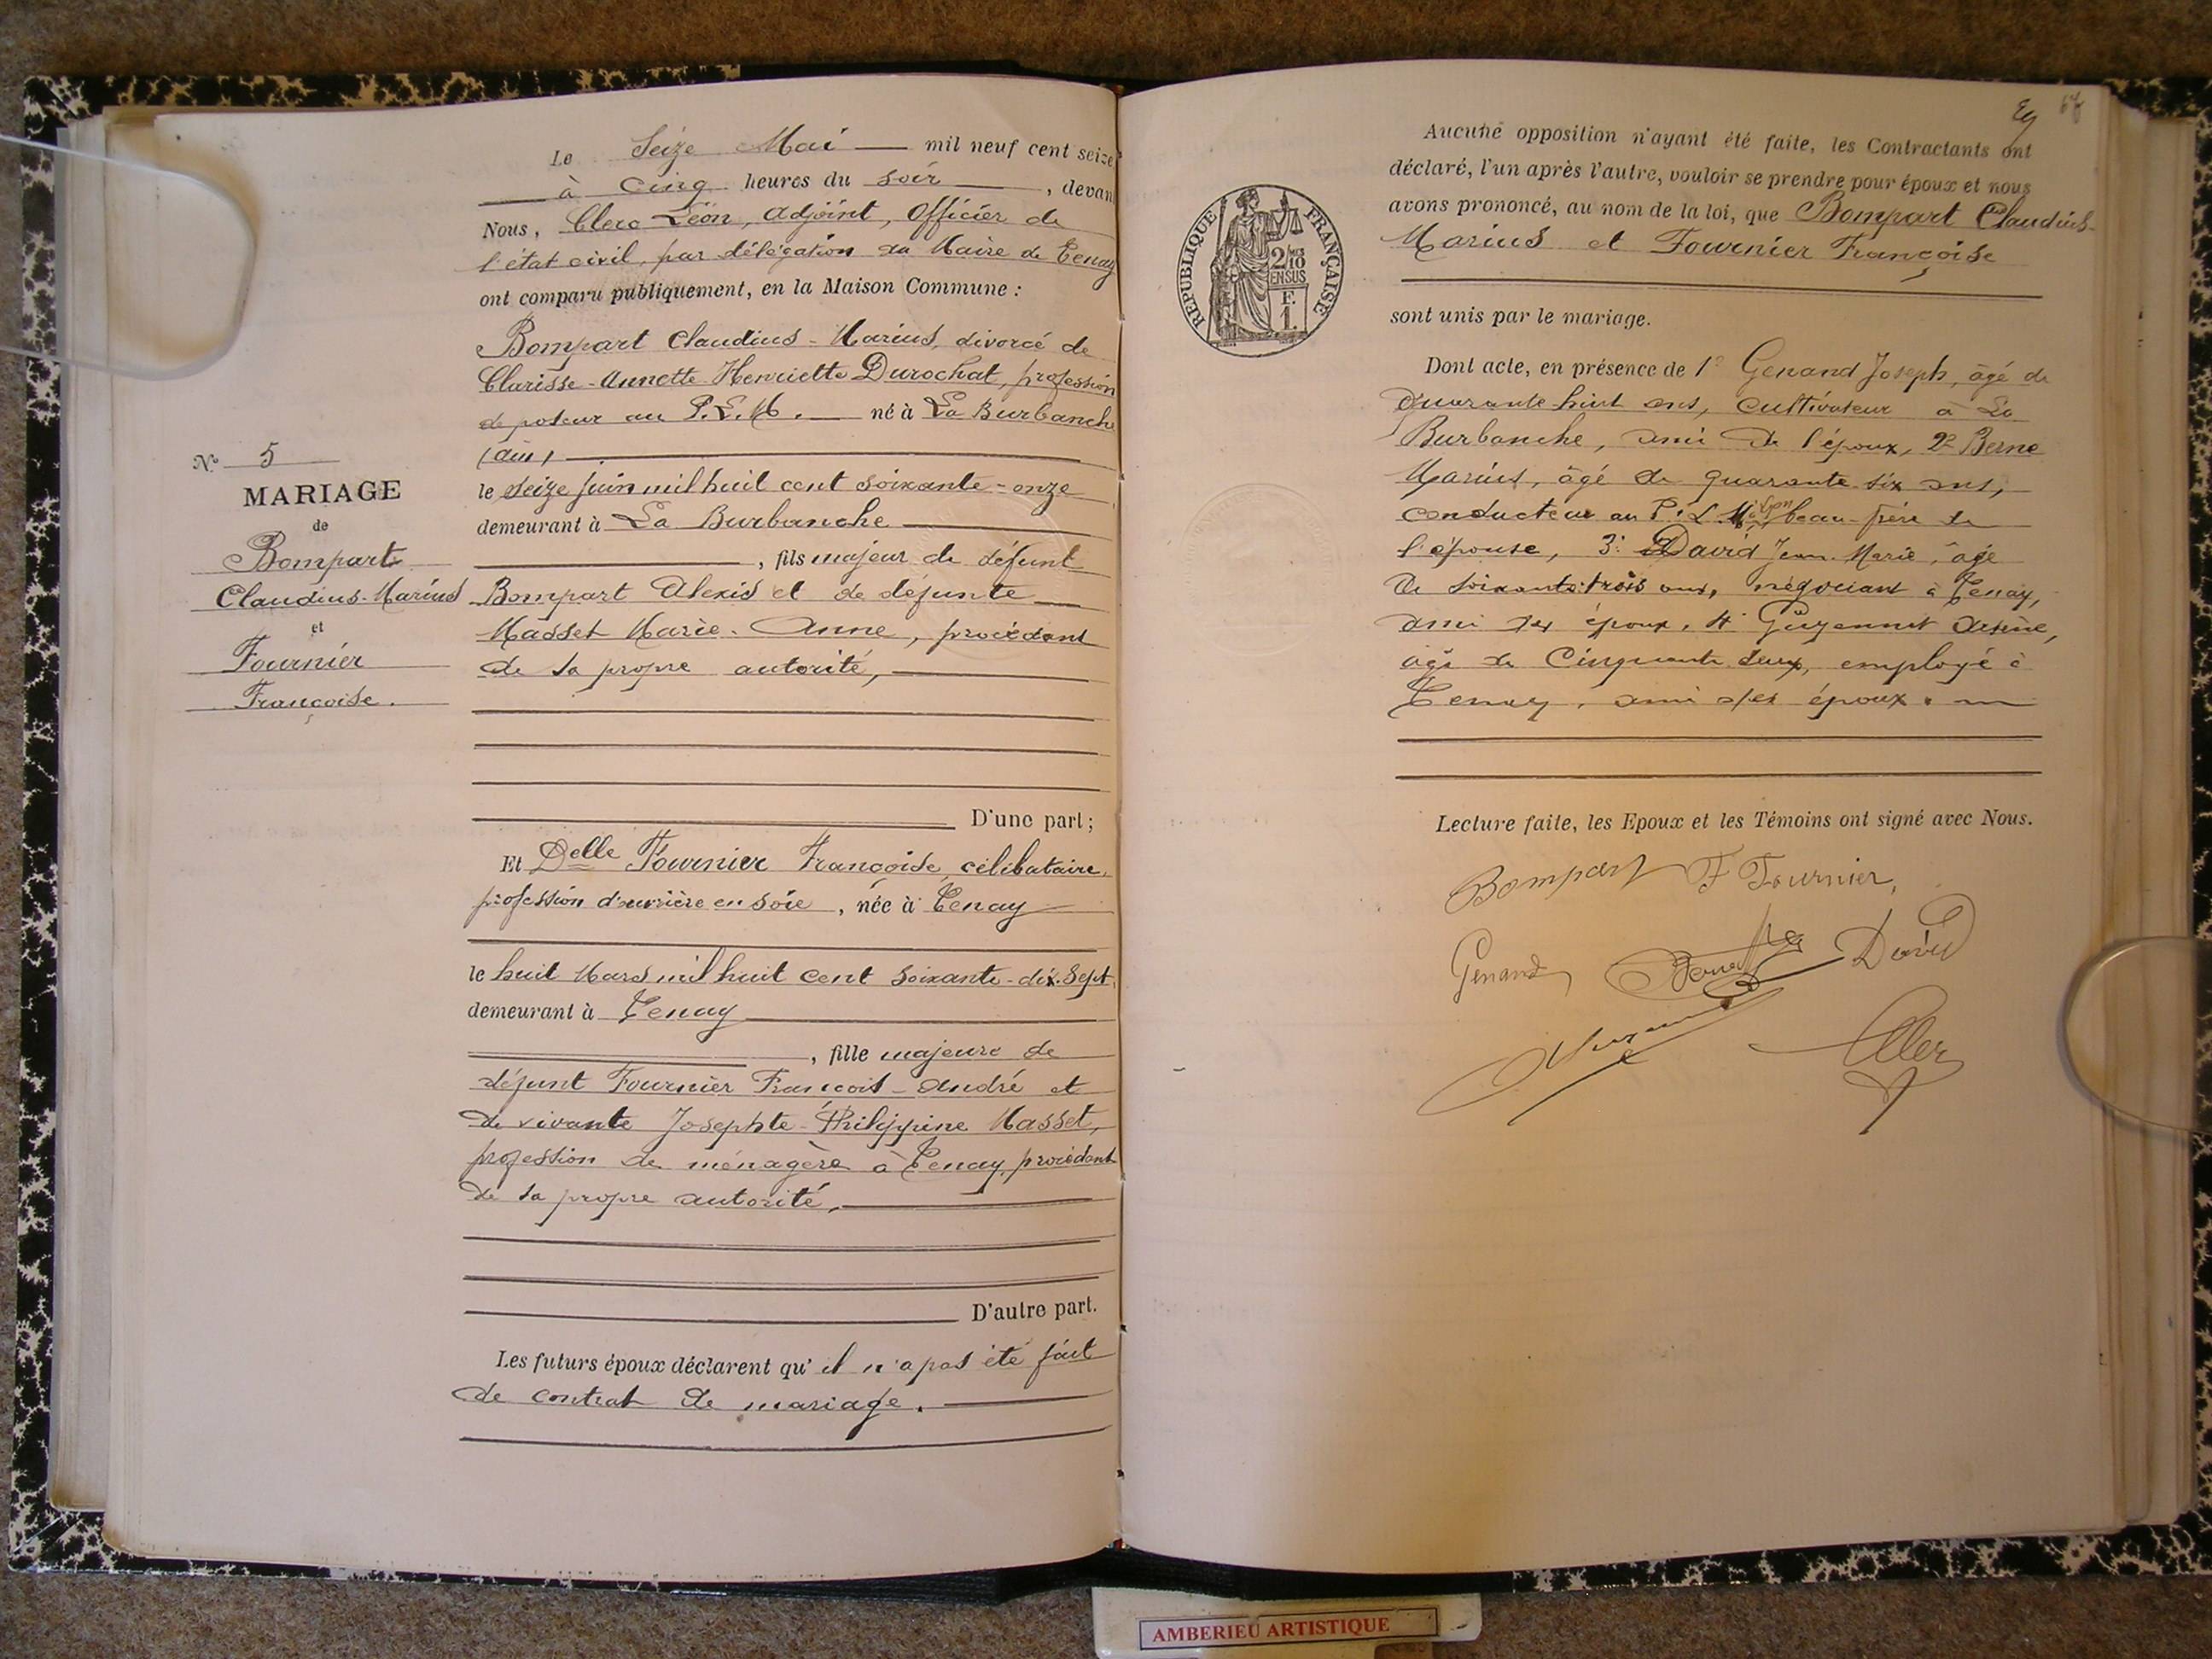 Le Seize Mai mil neuf cent seize
à cinq heures du soir, devan
Nous, Clerc Léon, adjoint, Officier de
l'état civil, par délégation du Maire de Tenay
ont comparu publiquement, en la Maison Commune :
Bompart Claudius-Marius, divorcé de
Clarisse-Annette-Henriette Durochat, profession
de poseur au P.L.M. né à La Burbanche
(Ain)
le seize juin mil huit cent soixante-onze
demeurant à La Burbanche
, fils majeur de défunt
Bompart Alexis et de défunte
Masset Marie-Anne, procédant
de sa propre autorité,
D'une part ;
Et Delle Fournier Françoise, célibataire,
profession d'ouvrière en soie, née à Tenay
le huit Mars mil huit cent soixante-dix-sept
demeurant à Tenay
, fille majeure de
défunt Fournier François-André et
de vivante Josephte-Philippine Masset,
profession de ménagère à Tenay, procédant
de sa propre autorité,
D'autre part.
Les futurs époux déclarent qu'il n'a pas été fait
de contrat de mariage.
N° 5
MARIAGE
de
Bompart
Claudius-Marius
et
Fournier
Françoise.
Aucune opposition n'ayant été faite, les Contractants ont
déclaré, l'un après l'autre, vouloir se prendre pour époux et nous
avons prononcé, au nom de la loi, que Bompart Claudius-
Marius et Fournier Françoise
sont unis par le mariage.
REPUBLIQUE FRANÇAISE
2/10
EN SUS
F.
1.
Dont acte, en présence de 1° Genand Joseph, âgé de
quarante-huit ans, cultivateur à La
Burbanche, ami de l'époux, 2° Berne
Marius, âgé de quarante-six ans,
conducteur au P.L.M. à Lyon beau-frère de
l'épouse, 3° David Jean-Marie, âgé
de soixante-trois ans, négociant à Tenay,
ami des époux, 4°
âgé de cinquante-deux, employé à
Tenay, ami des époux.
Lecture faite, les Epoux et les Témoins ont signé avec Nous.
Bompart F Fournier,
Genand David
AMBERIEU ARTISTIQUE